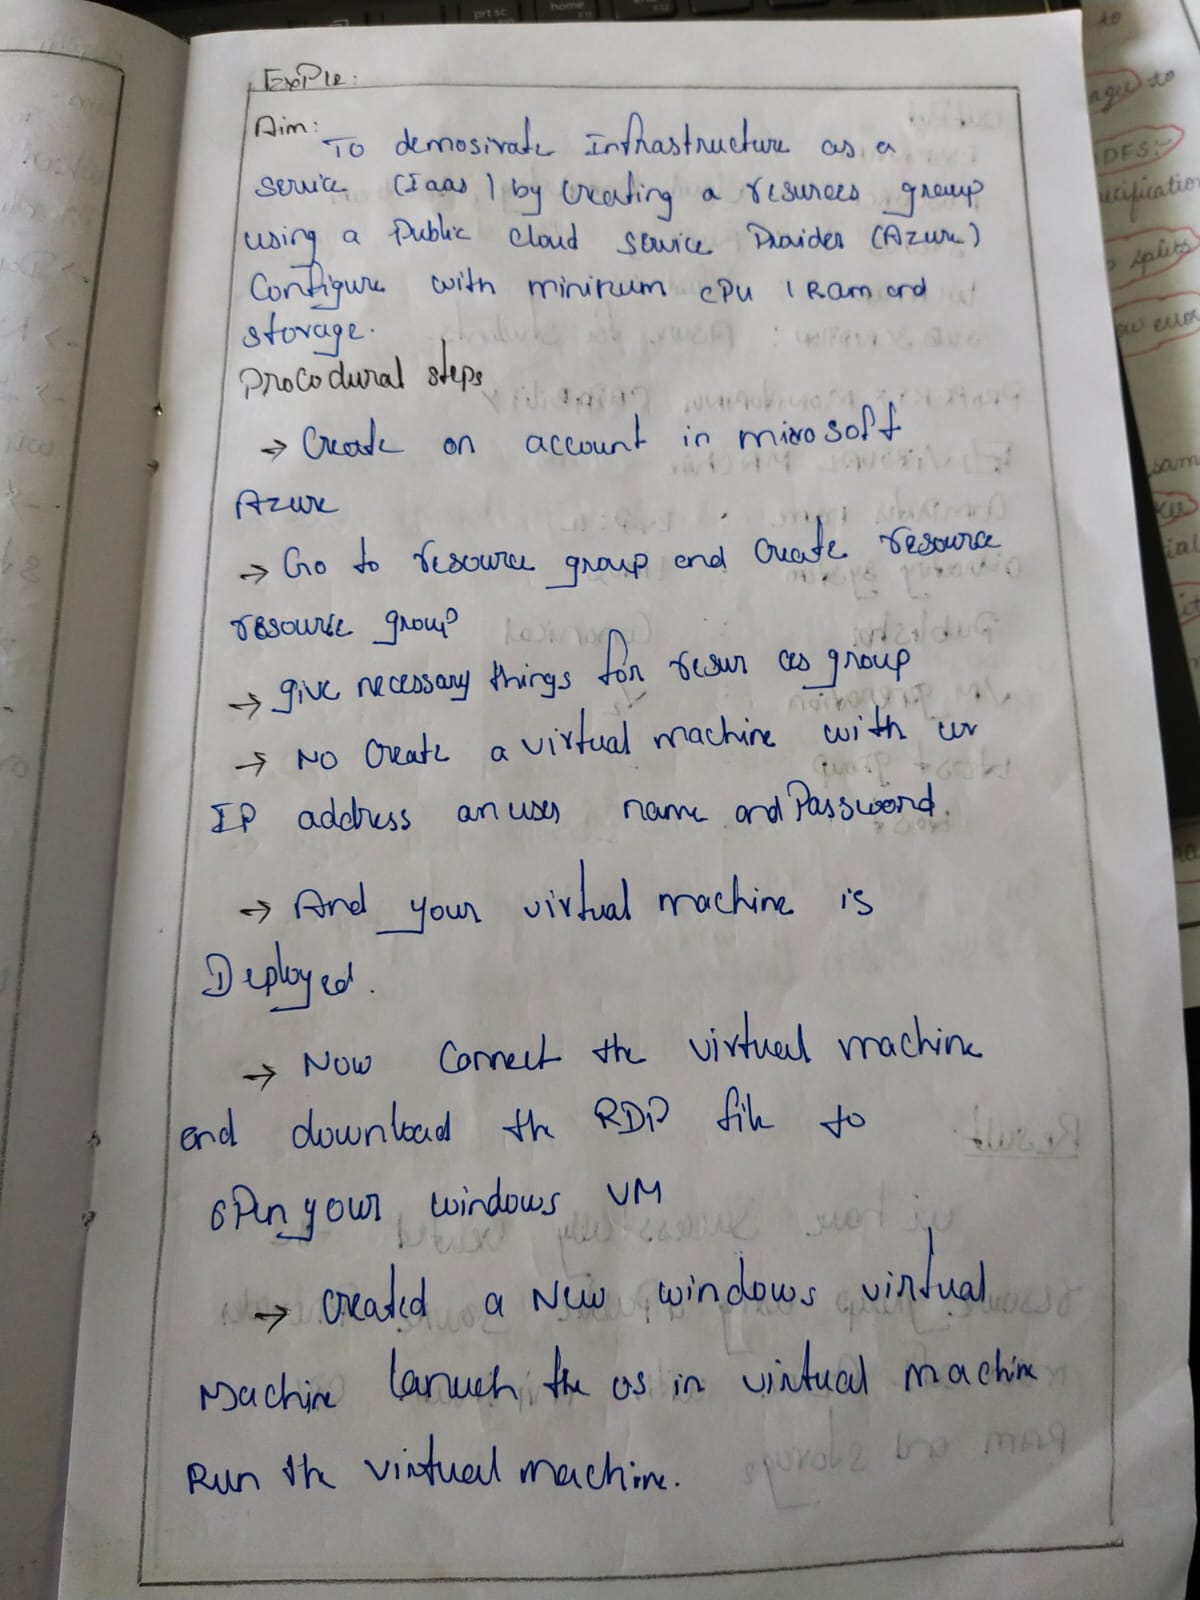 Aim:
To demosirate Infrastructure as a
service (Iaas) by creating a resurces group
using a Public cloud service Praider (Azure)
Configure with minimum CPU 1 Ram and
storage.
Procodural steps
→ Create on account in mirosoft
Azure
→ Go to resource group end create resource
resource group
→ give necessary things for resur ces group
→ No Create a virtual machine with ur
IP address an user name and Password.
→ And your virtual machine is
Deployed.
→ Now Connect the virtual machine
end download the RDP file to
open your windows VM
→ created a New windows virtual
Machine launch the os in virtual machine
Run the virtual machine.
prt sc
home
to
DFS:-
splits